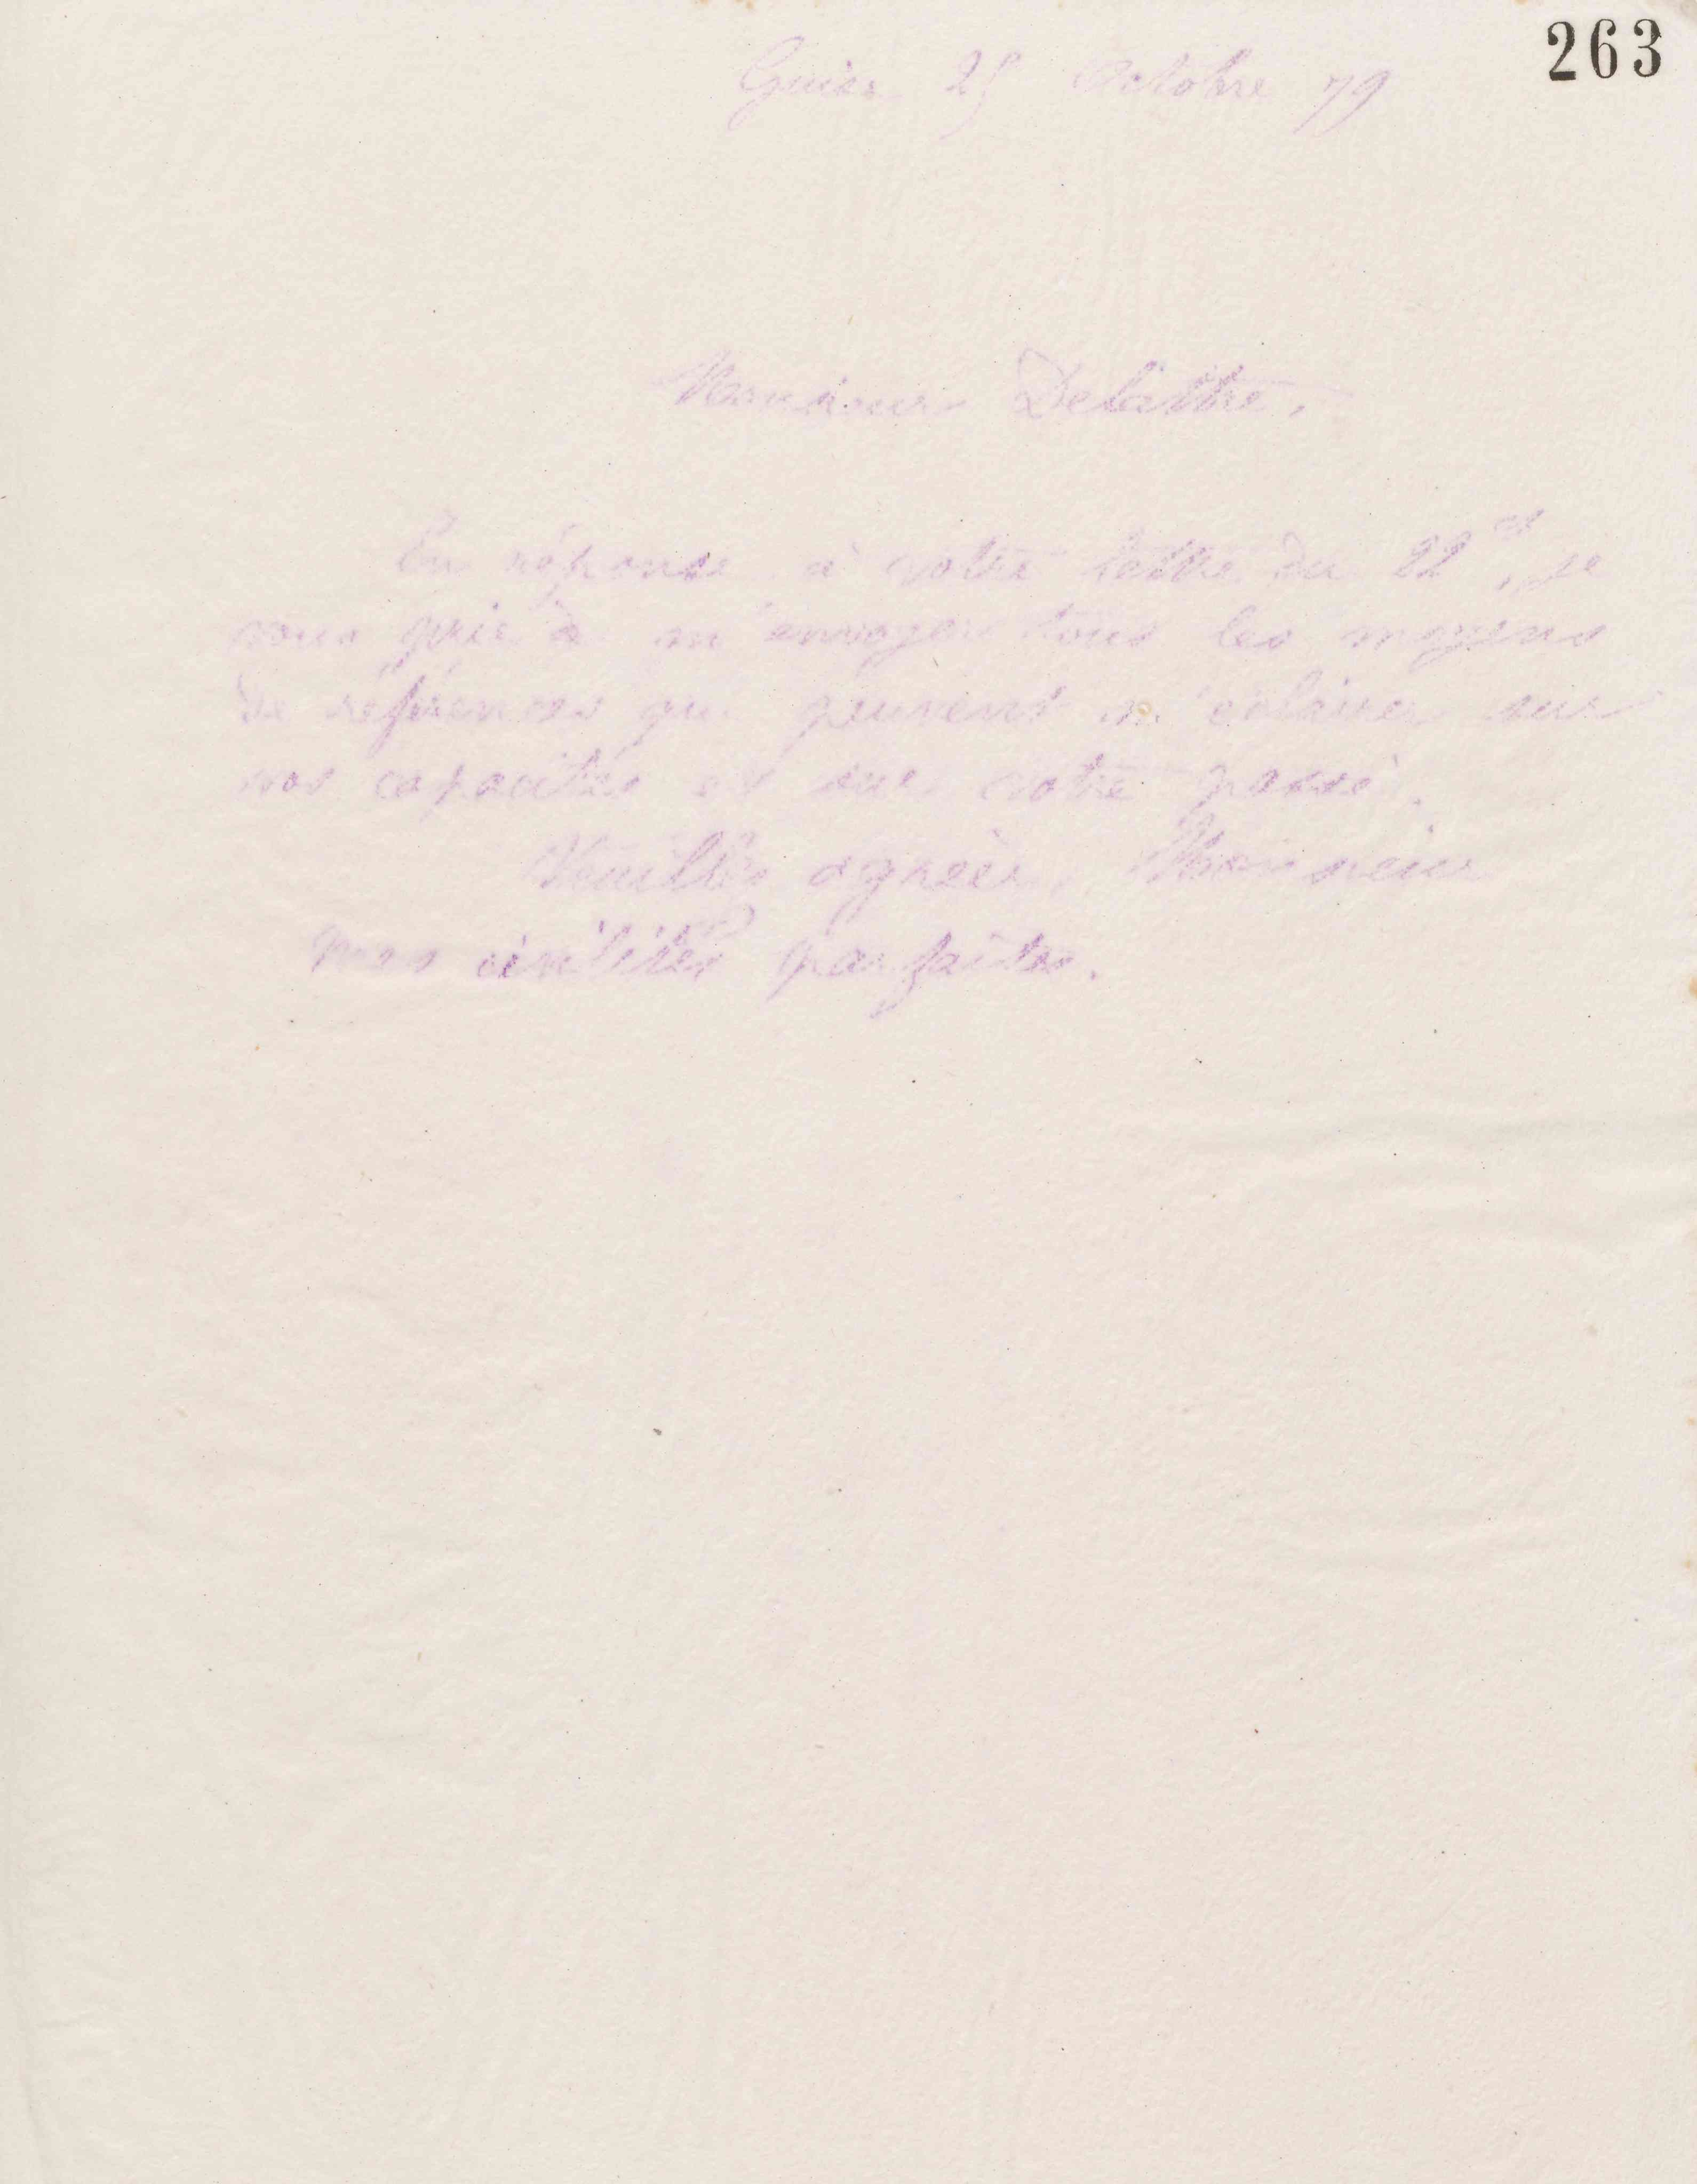 263
Guise 25 Octobre 79
Monsieur Delattre,
En réponse à votre lettre du 22 ct, je
vous prie de m'envoyer tous les moyens
de références qui peuvent m'éclairer sur
vos capacités et sur votre passé.
Veuillez agréer, Monsieur
mes civilités parfaites.